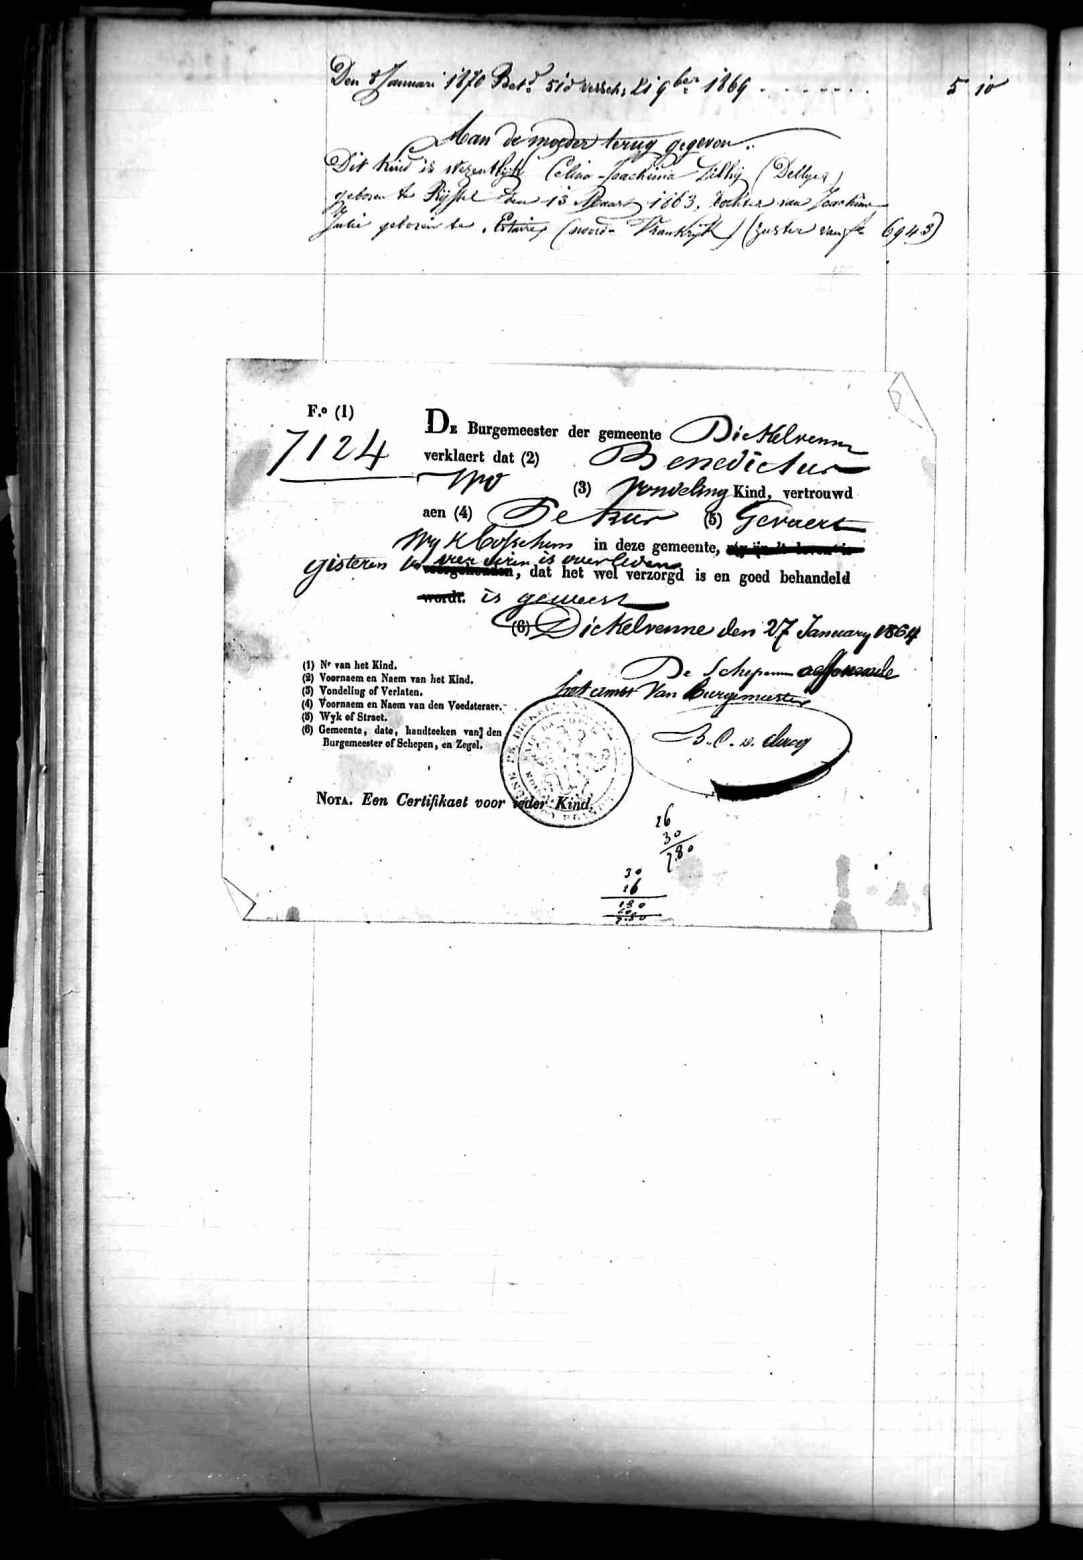 Den 8 Januari 1870 Bet.d 510 versch. 21 9ber 1869 . . . . . . . 5 10
Aan de moeder terug gegeven.
Dit kind is wezentlyk Celina Joachima (Dellye)
geboren te Ryssel den 13 Maart 1863, dochter van Joachim
Julie geboren te Estaires (noord-Frankryk) (zuster van f.o 6943)
F.o (1)
7124
De Burgemeester der gemeente Dickelvenne
verklaert dat (2) Benedictus
(3) Vondeling Kind, vertrouwd
aen (4) (5) Gevaert
Wyk in deze gemeente,
gisteren is overleden
, dat het wel verzorgd is en goed behandeld
wordt. is geweest
(6) Dickelvenne den 27 January 1864
De Schepen
het ambt van Burgmeester
(1) Nr van het Kind.
(2) Voornaem en Naem van het Kind.
(3) Vondeling of Verlaten.
(4) Voornaem en Naem van den Voedsteraer.
(5) Wyk of Straet.
(6) Gemeente, date, handteeken van den
Burgemeester of Schepen, en Zegel.
Nota. Een Certifikaet voor ieder Kind.
26
30
780
30
26